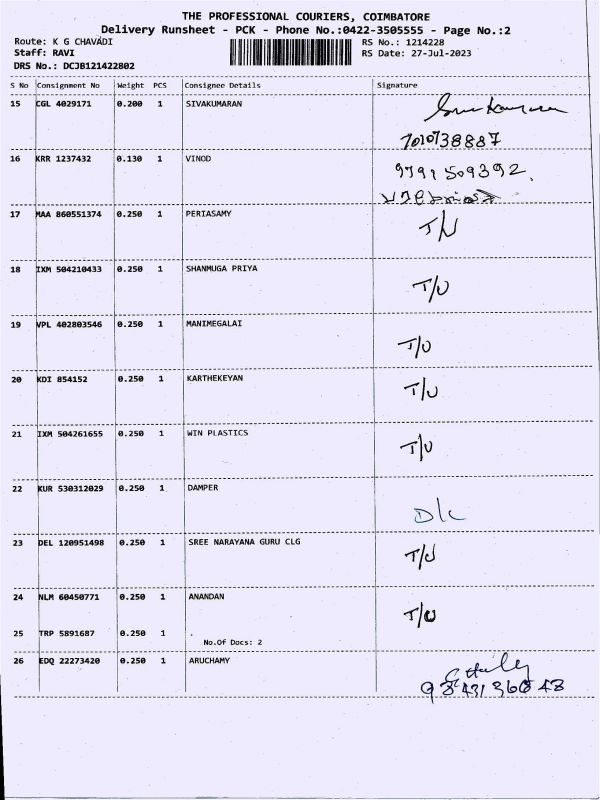 THE PROFESSIONAL COURIERS, COIMBATORE
Delivery Runsheet - PCK - Phone No.:0422-3505555 - Page No.:2
Route: K G CHAVADI RS No.: 1214228
Staff: RAVI RS Date: 27-Jul-2023
DRS No.: DCJB121422802
S No Consignment No Weight PCS Consignee Details Signature
15 CGL 4029171 0.200 1 SIVAKUMARAN
7010738887
16 KRR 1237432 0.130 1 VINOD
9791509392.
17 MAA 860551374 0.250 1 PERIASAMY
T/U
18 IXM 504210433 0.250 1 SHANMUGA PRIYA
T/U
19 VPL 402803546 0.250 1 MANIMEGALAI
T/U
20 KDI 854152 0.250 1 KARTHEKEYAN
T/U
21 IXM 504261655 0.250 1 WIN PLASTICS
T/U
22 KUR 530312029 0.250 1 DAMPER
D/L
23 DEL 120951498 0.250 1 SREE NARAYANA GURU CLG
T/U
24 NLM 60450771 0.250 1 ANANDAN
T/U
25 TRP 5891687 0.250 1 .
No.Of Docs: 2
26 EDQ 22273420 0.250 1 ARUCHAMY